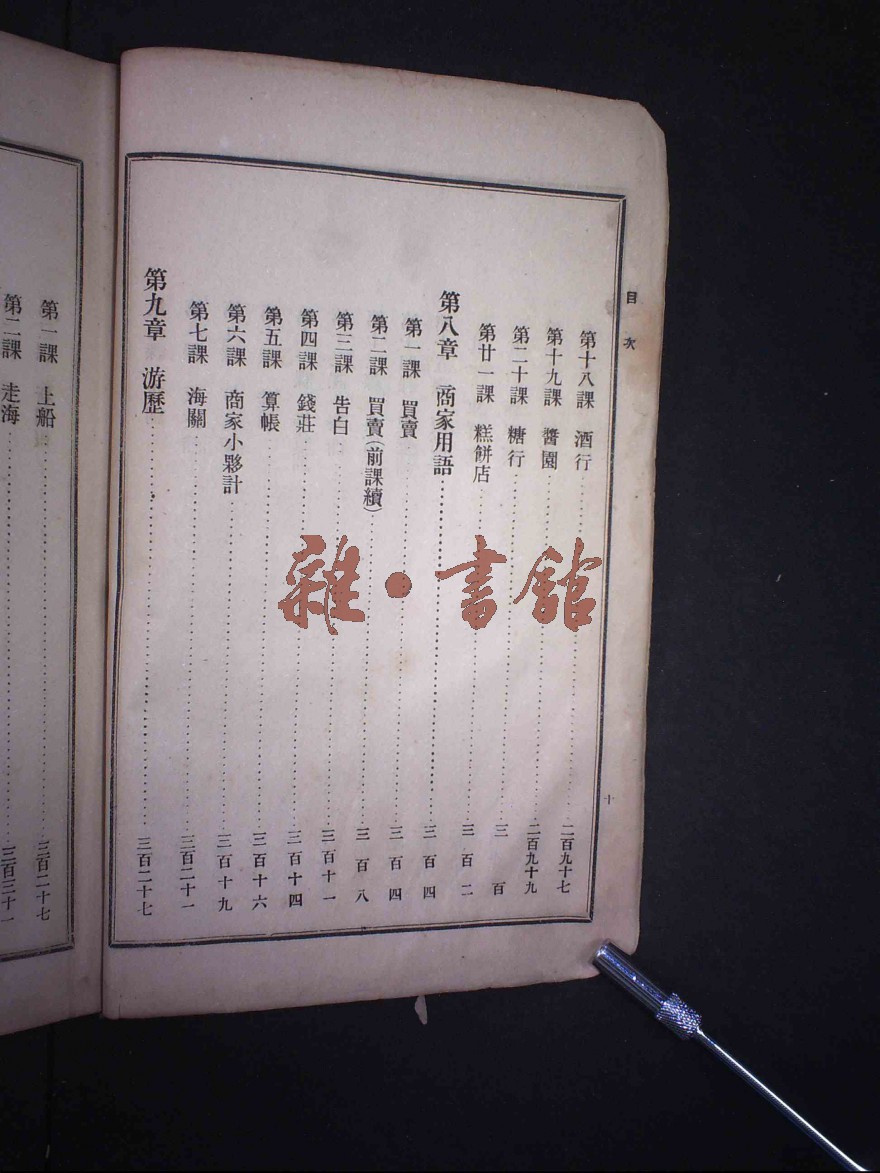 目次
十
第十八課 酒行 二百九十七
第十九課 醬園 二百九十九
第二十課 糖行 三百
第廿一課 糕餅店 三百二
第八章 商家用語 三百四
第一課 買賣 三百四
第二課 買賣(前課續) 三百八
第三課 告白 三百十一
第四課 錢莊 三百十四
第五課 算帳 三百十六
第六課 商家小夥計 三百十九
第七課 海關 三百二十一
第九章 游歷 三百二十七
第一課 上船 三百二十七
第二課 走海 三百三十一
雜·書館